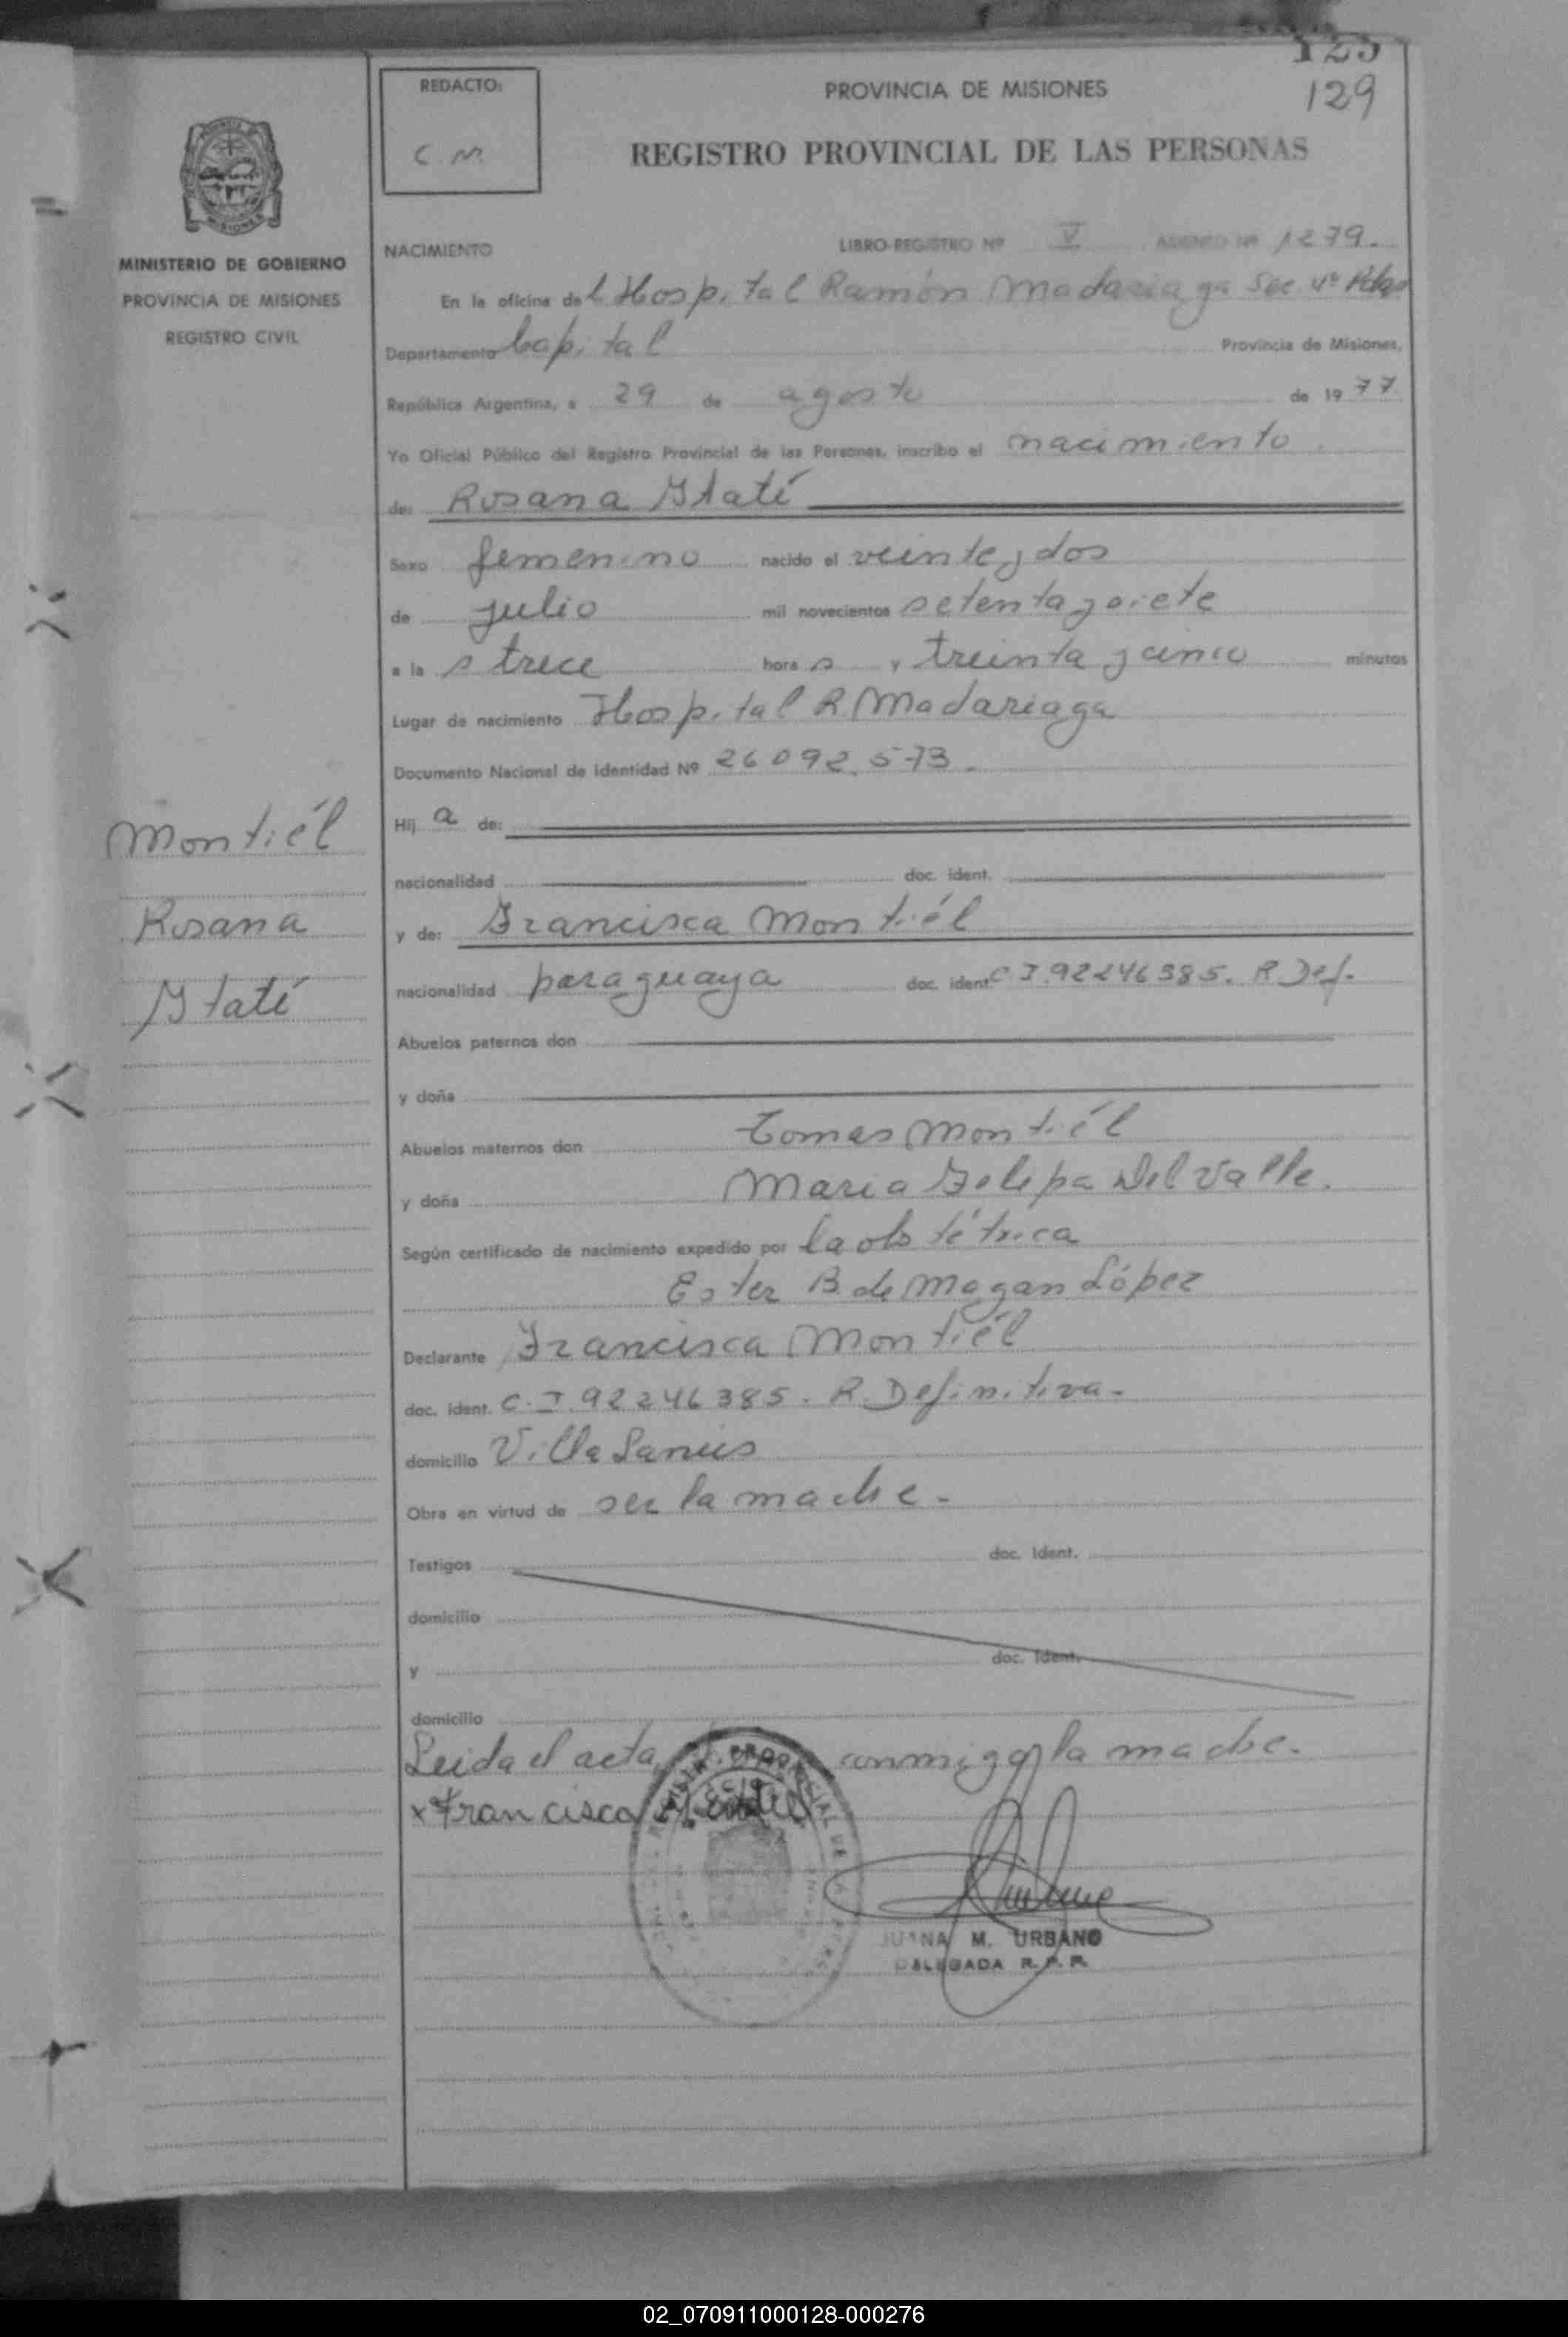 125
129
REDACTO:
C M
PROVINCIA DE MISIONES
REGISTRO PROVINCIAL DE LAS PERSONAS
MINISTERIO DE GOBIERNO
PROVINCIA DE MISIONES
REGISTRO CIVIL
NACIMIENTO LIBRO-REGISTRO Nº V ASIENTO Nº 1279.
En la oficina del Hospital Ramón Madariaga Sec. Pdas
Departamento Capital Provincia de Misiones,
República Argentina, a 29 de agosto de 1977
Yo Oficial Público del Registro Provincial de las Personas, inscribo el nacimiento.
de: Rosana Itatí
Sexo femenino nacido el veinte y dos
de julio mil novecientos setenta y siete
a las trece horas y treinta y cinco minutos
Lugar de nacimiento Hospital R. Madariaga
Documento Nacional de Identidad Nº 26092.573.
Montiél
Rosana
Itatí
Hija de:
nacionalidad doc. ident.
y de: Francisca Montiél
nacionalidad paraguaya doc. ident. C I.92246385. R Def.
Abuelos paternos don
y doña
Abuelos maternos don Tomas Montiél
y doña Maria Del Valle.
Según certificado de nacimiento expedido por la obstétrica
Ester B. de Magan López
Declarante Francisca Montiél
doc. ident. C. I. 92246385. R. Definitiva.-
domicilio Villa Lanús
Obra en virtud de ser la madre.-
Testigos doc. Ident.
domicilio
y doc. Ident.
domicilio
Leida el acta, conmigo la madre.-
x Francisca Montiel
JUANA M. URBANO
DELEGADA R. P. P.
02_070911000128-000276